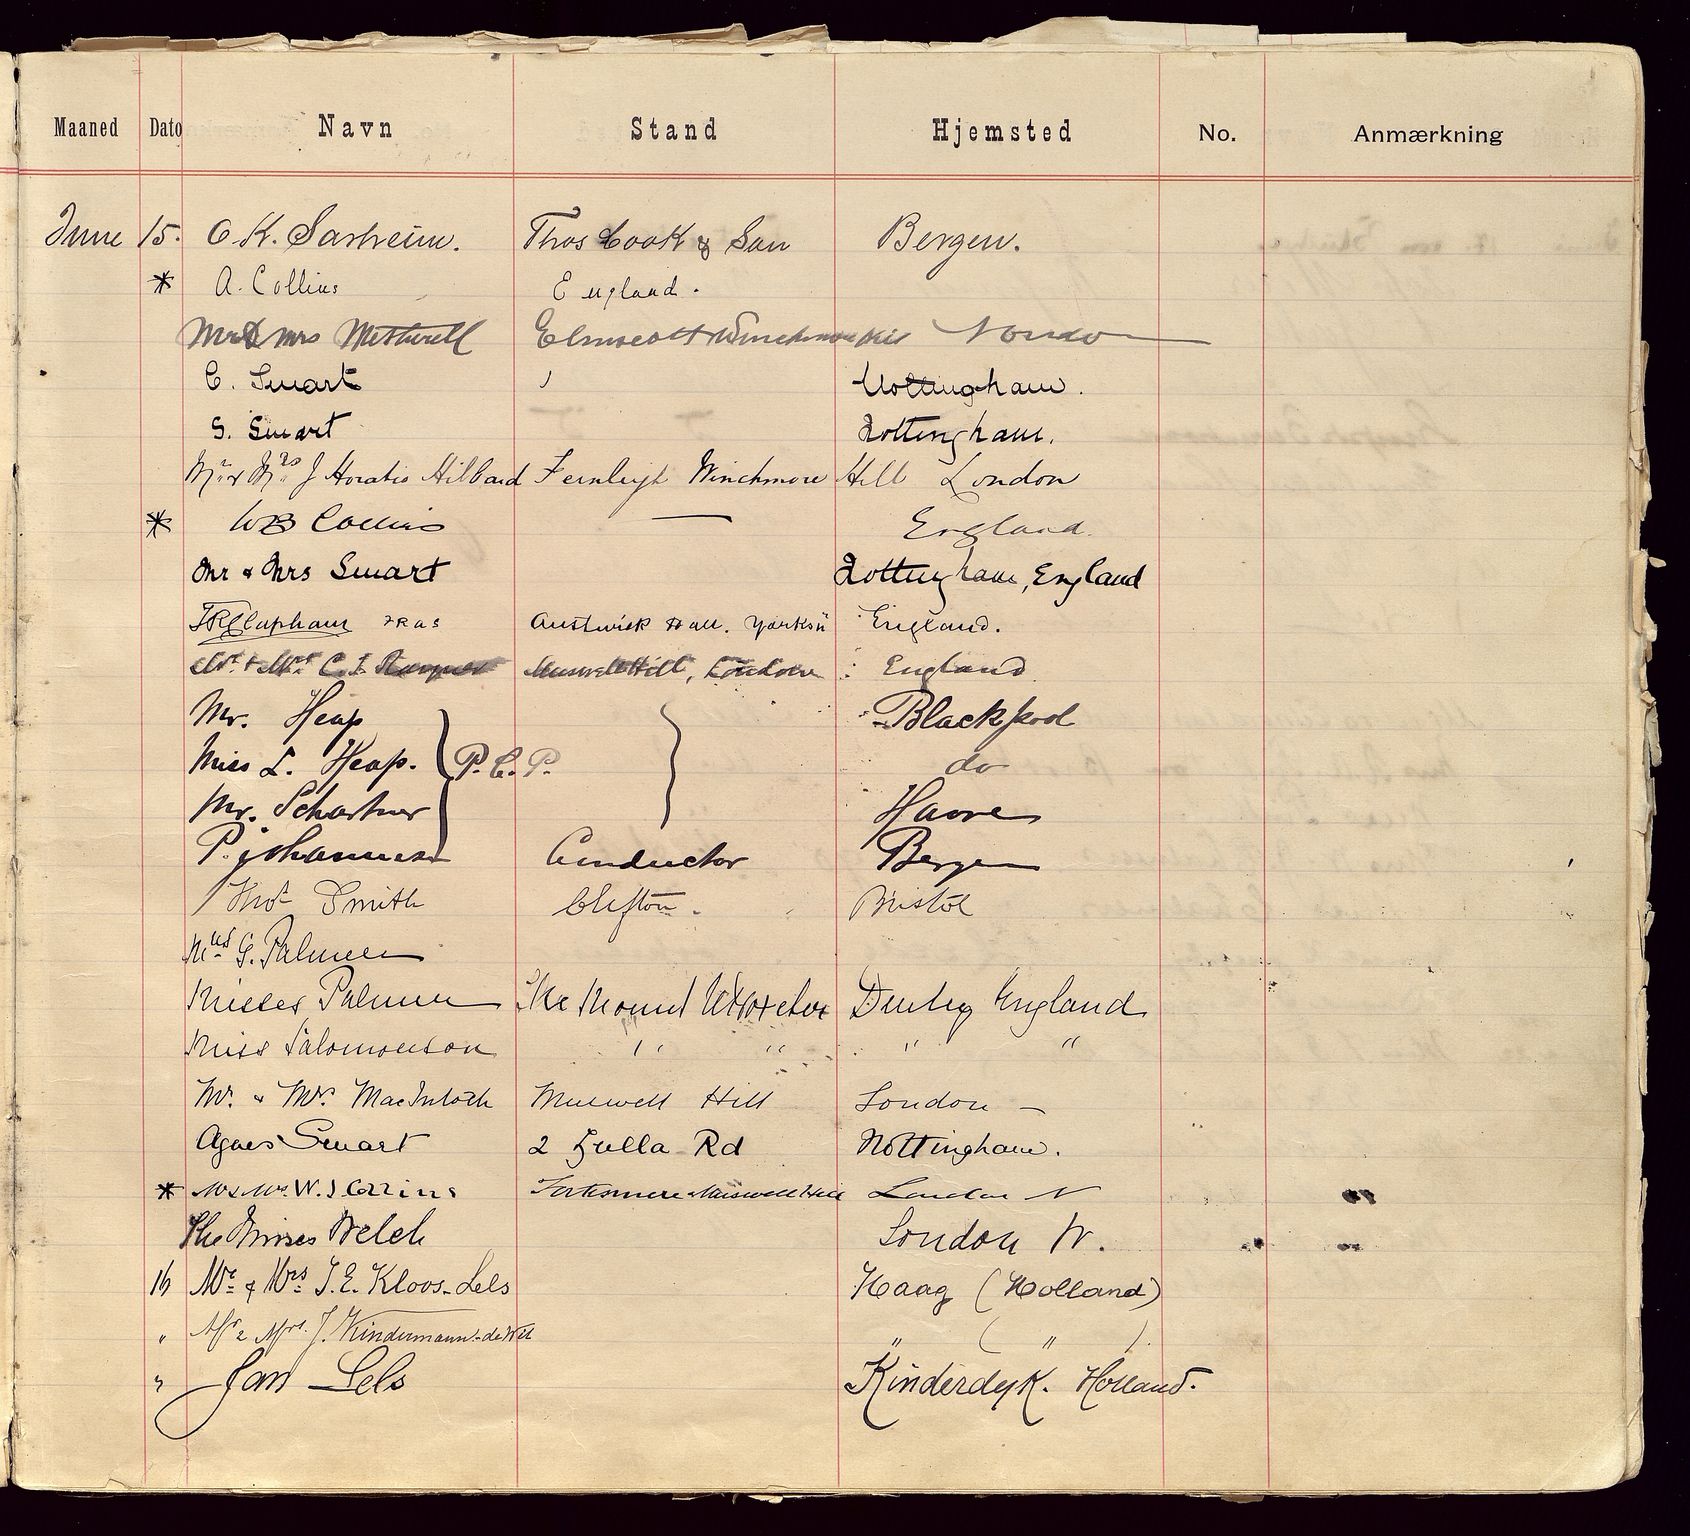 Maaned Dato Navn Stand Hjemsted No. Anmærkning
June 15. O. K. Sarheim. Thos Cook & Son Bergen.
* A. Collins England.
Mr & Mrs Methwell Elmscott Winchmore Hill London
C. Smart Nottingham.
S. Smart Nottingham.
Mr & Mrs J Horatio Hibbard Fernleigh Winchmore Hill London
* WB Collins — England.
Mr & Mrs Smart Nottingham, England
Clapham FRAS Austwick Hall. Yorks England.
Mr & Mrs C. Muswell Hill, London England
Mr. Heap Blackpool
Miss L. Heap. P. C. P. do
Mr. Schartner Havre
P. Johannesen Conductor Bergen
Thos Smith Clifton. Bristol
Mrs G. Palmer
Misses Palmer The Mount Uttoxeter Derby England
Miss Salomonson " " " "
Mr. & Mrs. MacIntosh Muswell Hill London —
Agnes Smart 2 Zulla Rd Nottingham.
* Mr & Mrs W. J Collins Fortismere Muswell Hill London N
The Misses Welch London W.
16 Mr & Mrs J. E. Kloos-Lels Haag (Holland)
" Mr & Mrs. J. Kindermann-de Wit " ( " )
" Jan Lels Kinderdyk. Holland.